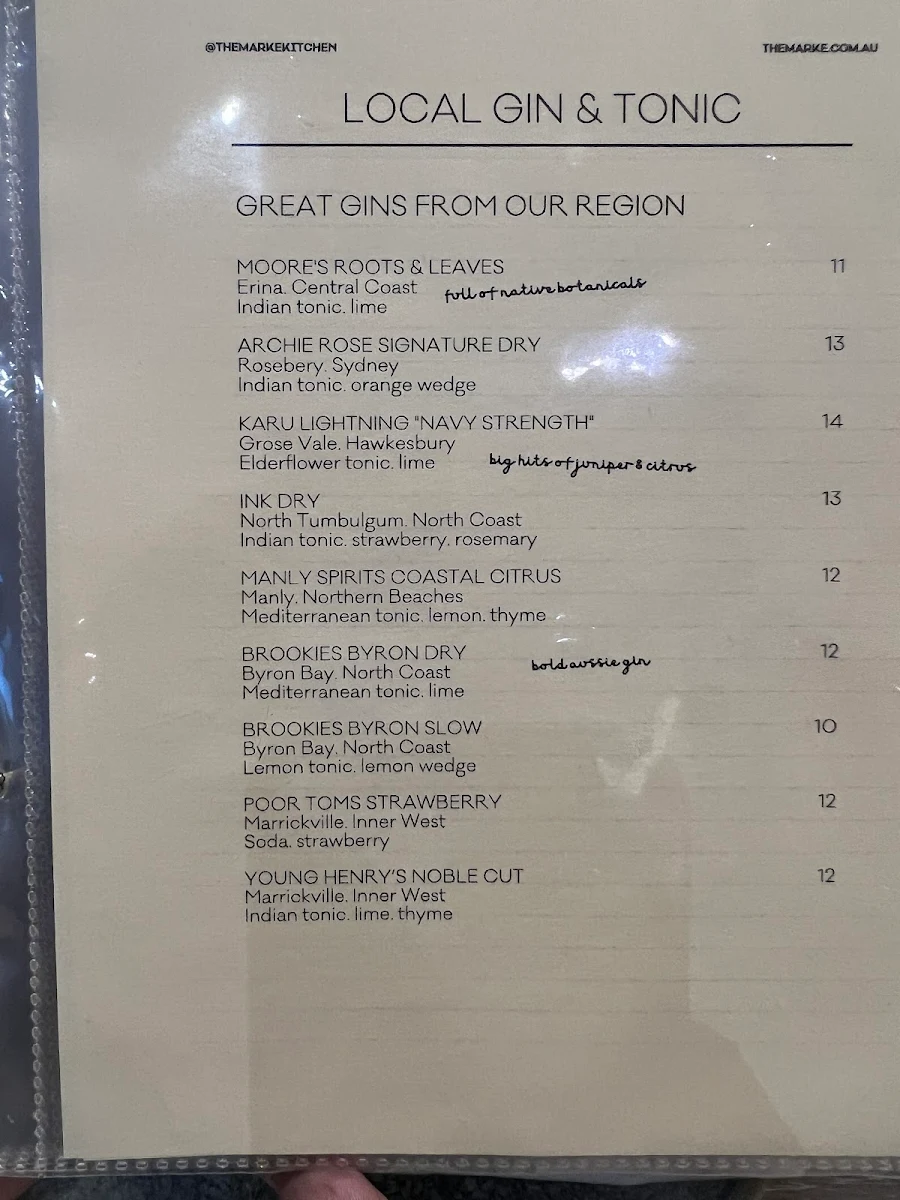 @THEMARKEKITCHEN
THEMARKE.COM.AU
LOCAL GIN & TONIC
GREAT GINS FROM OUR REGION
MOORE'S ROOTS & LEAVES 11
Erina. Central Coast
full of native botanicals
Indian tonic. lime
ARCHIE ROSE SIGNATURE DRY 13
Rosebery. Sydney
Indian tonic. orange wedge
KARU LIGHTNING "NAVY STRENGTH" 14
Grose Vale. Hawkesbury
Elderflower tonic. lime big hits of juniper & citrus
INK DRY 13
North Tumbulgum. North Coast
Indian tonic. strawberry. rosemary
MANLY SPIRITS COASTAL CITRUS 12
Manly. Northern Beaches
Mediterranean tonic. lemon. thyme
BROOKIES BYRON DRY 12
Byron Bay. North Coast bold aussie gin
Mediterranean tonic. lime
BROOKIES BYRON SLOW 10
Byron Bay. North Coast
Lemon tonic. lemon wedge
POOR TOMS STRAWBERRY 12
Marrickville. Inner West
Soda. strawberry
YOUNG HENRY'S NOBLE CUT 12
Marrickville. Inner West
Indian tonic. lime. thyme